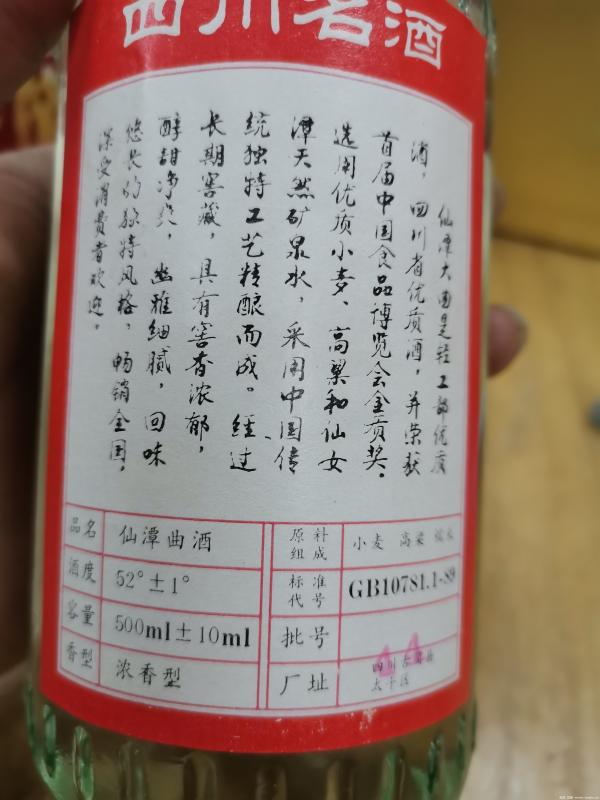 四川名酒
仙潭大曲是轻工部优质
酒，四川省优质酒，并荣获
首届中国食品博览会金质奖。
选用优质小麦、高粱和仙女
潭天然矿泉水，采用中国传
统独特工艺精酿而成。经过
长期窖藏，具有窖香浓郁，
醇甜净爽，幽雅细腻，回味
悠长的独特风格，畅销全国，
深受消费者欢迎。
品名 仙潭曲酒
酒度 52°±1°
容量 500ml±10ml
香型 浓香型
原补组成 小麦 高粱
标准代号 GB10781.1-89
批号
厂址 四川古蔺县
太平区